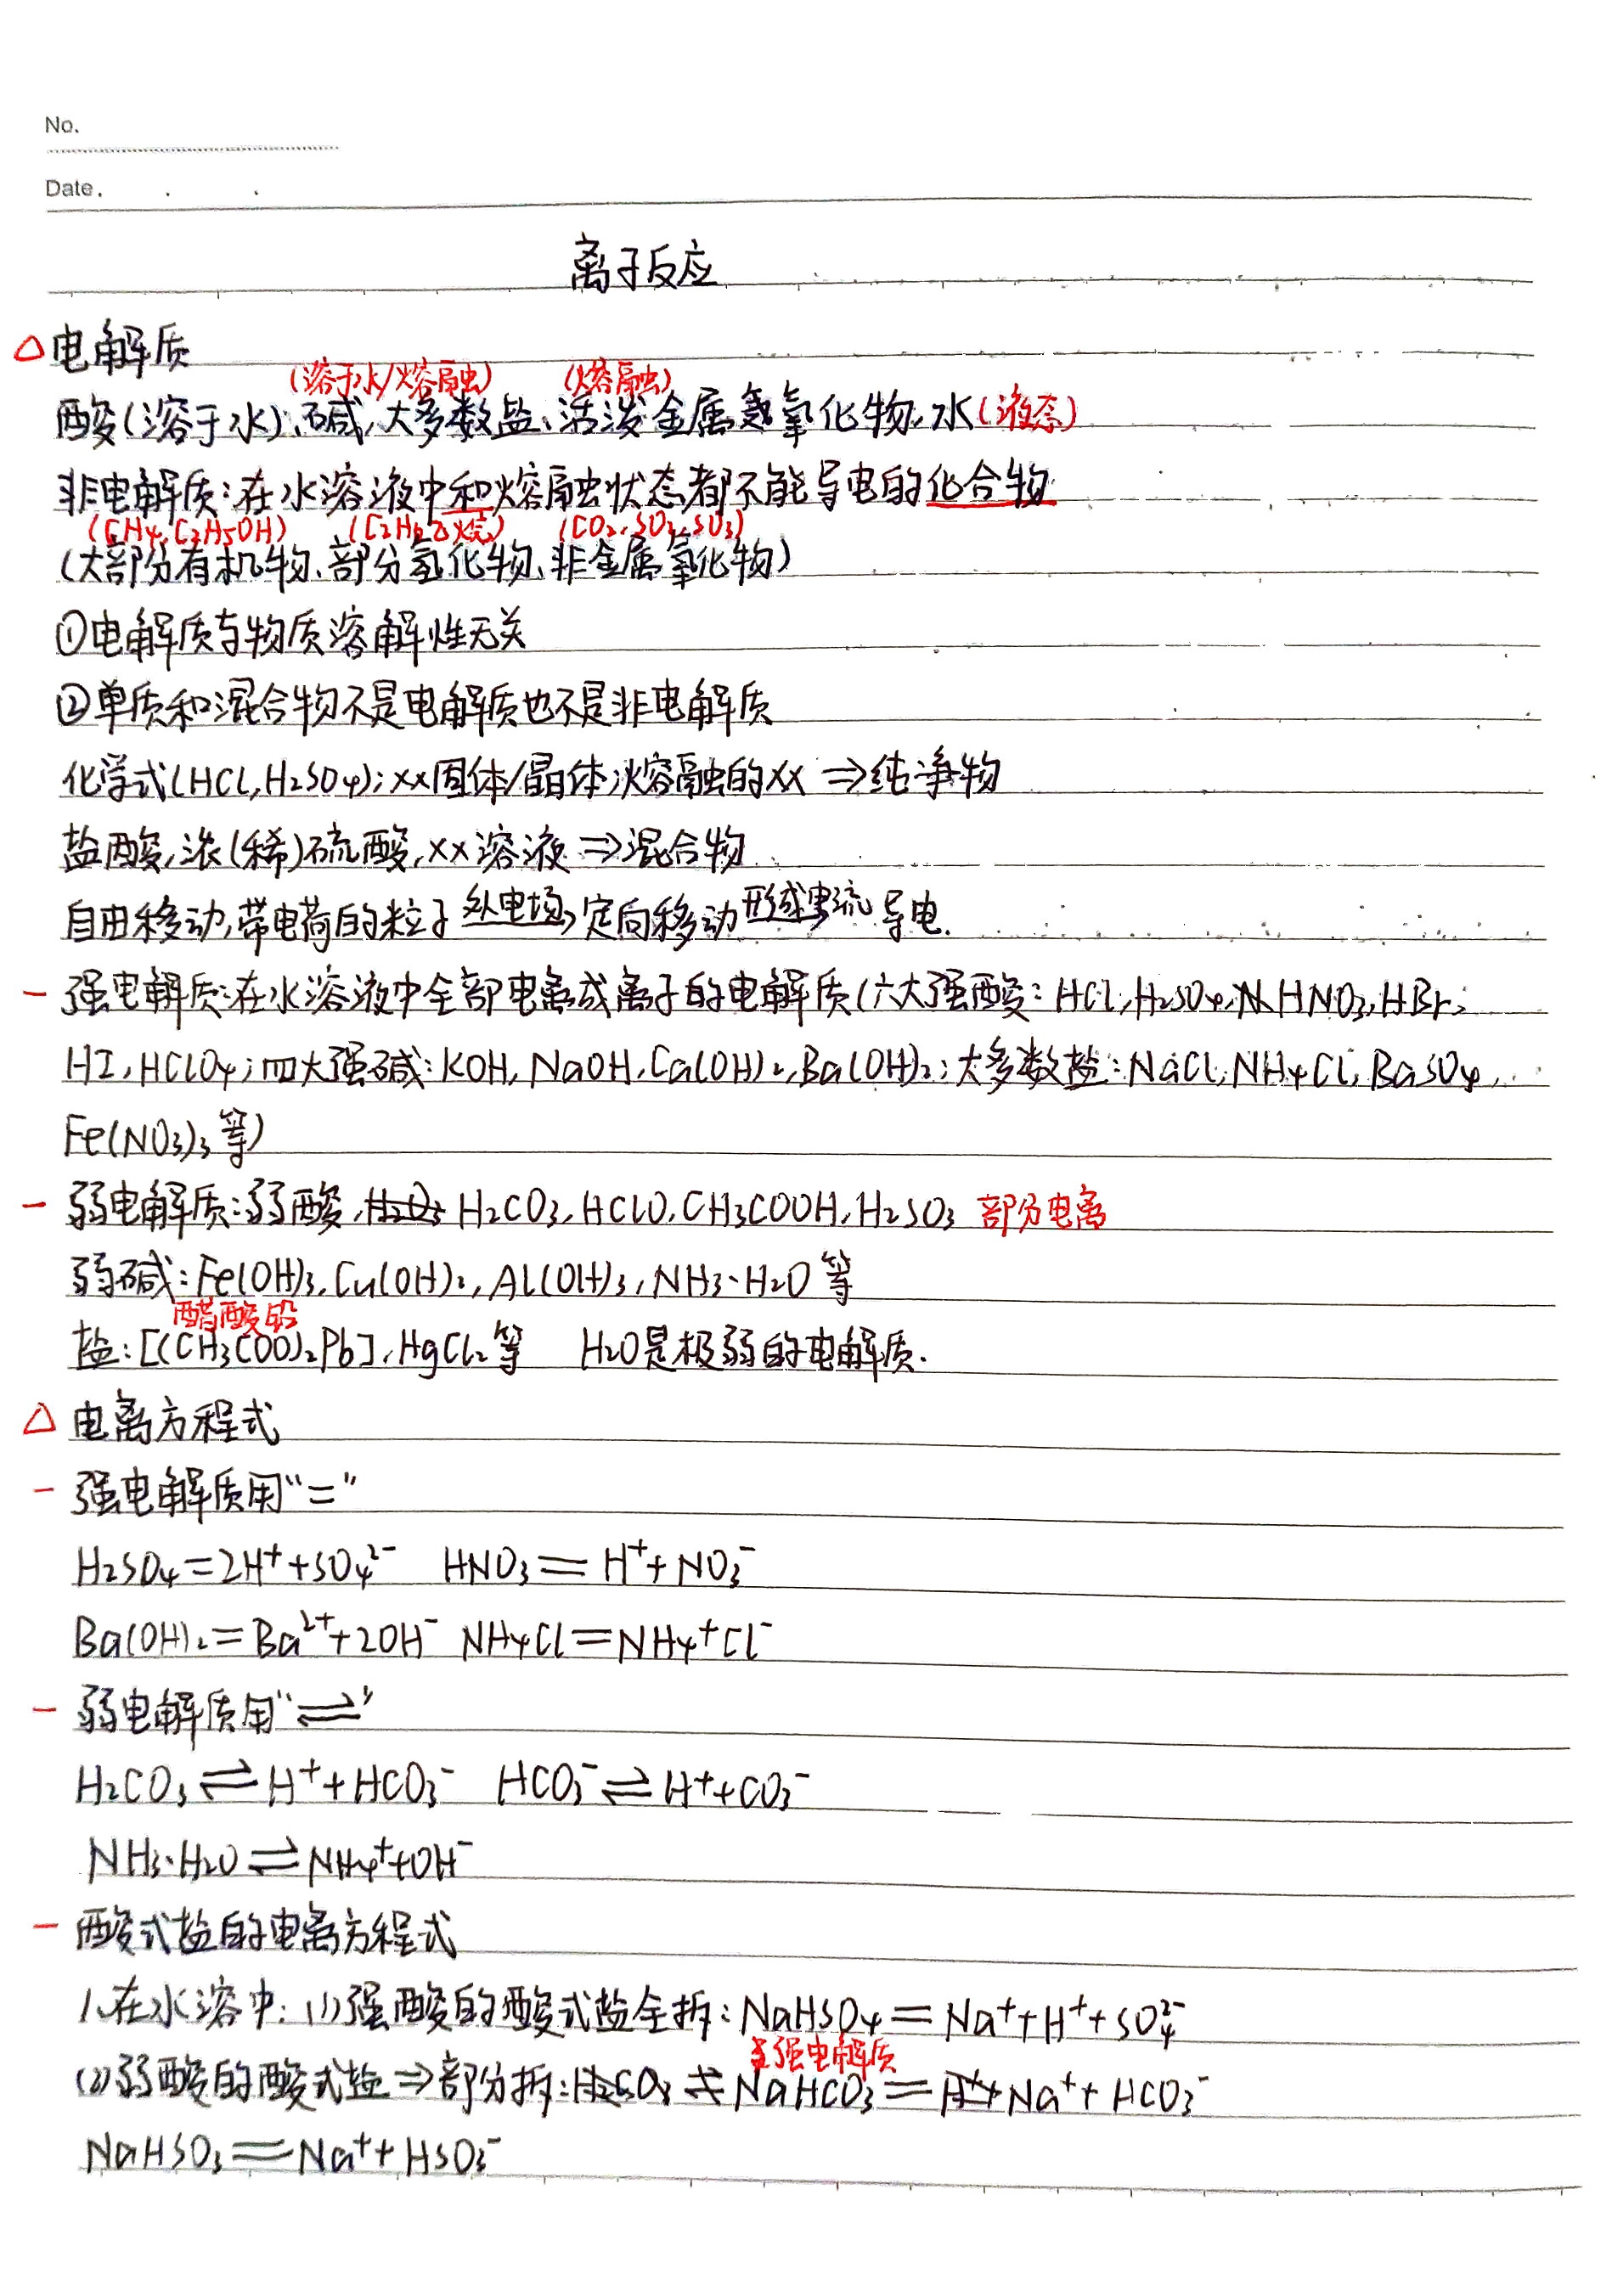 No.
Date.
离子反应
△电解质
(溶于水/熔融) (熔融)
酸(溶于水)、碱,大多数盐、活泼金属氧化物,水(液态)
非电解质:在水溶液中和熔融状态都不能导电的化合物
(CH₄,C₂H₅OH) (C₂H₆乙烷) (CO₂,SO₂,SO₃)
(大部分有机物、部分氢化物、非金属氧化物)
①电解质与物质溶解性无关
②单质和混合物不是电解质也不是非电解质
化学式(HCl,H₂SO₄);xx固体/晶体;熔融的xx ⇒纯净物
盐酸,浓(稀)硫酸,xx溶液⇒混合物
自由移动,带电荷的粒子 外电场→ 定向移动 形成电流 导电.
- 强电解质:在水溶液中全部电离成离子的电解质(六大强酸:HCl,H₂SO₄,HNO₃,HBr,
HI,HClO₄;四大强碱:KOH,NaOH,Ca(OH)₂,Ba(OH)₂;大多数盐:NaCl,NH₄Cl,BaSO₄,
Fe(NO₃)₃等)
- 弱电解质:弱酸,H₂CO₃,HClO,CH₃COOH,H₂SO₃ 部分电离
弱碱:Fe(OH)₃,Cu(OH)₂,Al(OH)₃,NH₃·H₂O等
醋酸铅
盐:[(CH₃COO)₂Pb],HgCl₂等 H₂O是极弱的电解质.
△ 电离方程式
- 强电解质用“=”
H₂SO₄=2H⁺+SO₄²⁻ HNO₃=H⁺+NO₃⁻
Ba(OH)₂=Ba²⁺+2OH⁻ NH₄Cl=NH₄⁺Cl⁻
- 弱电解质用“⇌”
H₂CO₃⇌H⁺+HCO₃⁻ HCO₃⁻⇌H⁺+CO₃⁻
NH₃·H₂O⇌NH₄⁺+OH⁻
- 酸式盐的电离方程式
1.在水溶中:(1)强酸的酸式盐全拆:NaHSO₄=Na⁺+H⁺+SO₄²⁻
强电解质
(2)弱酸的酸式盐⇒部分拆:NaHCO₃=Na⁺+HCO₃⁻
NaHSO₃=Na⁺+HSO₃⁻